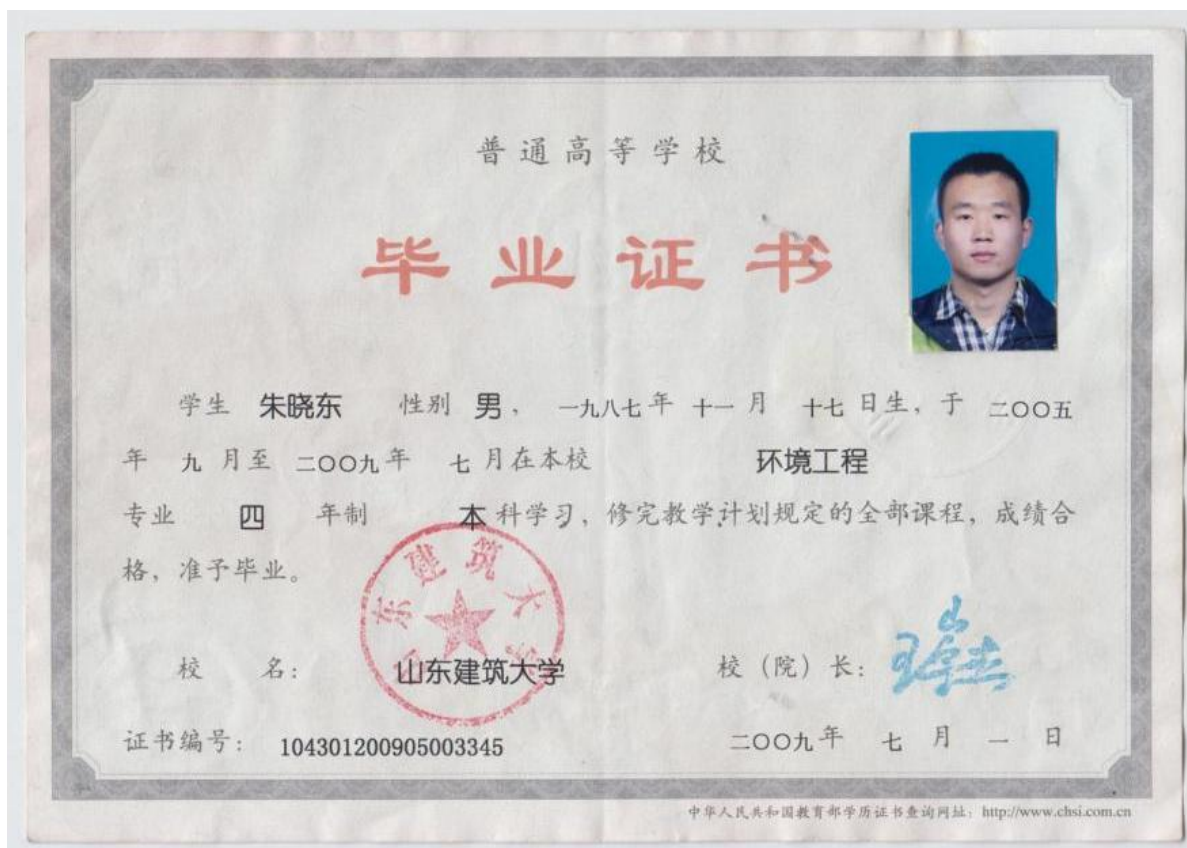 普通高等学校
毕业证书
学生 朱晓东 性别 男, 一九八七年 十一 月 十七 日生, 于 二〇〇五
年 九 月至 二〇〇九年 七 月在本校 环境工程
专业 四 年制 本 科学习, 修完教学计划规定的全部课程, 成绩合
格, 准予毕业。
山东建筑大学
校 名: 山东建筑大学 校 (院) 长:
证书编号: 104301200905003345 二〇〇九年 七 月 一 日
中华人民共和国教育部学历证书查询网址: http://www.chsi.com.cn